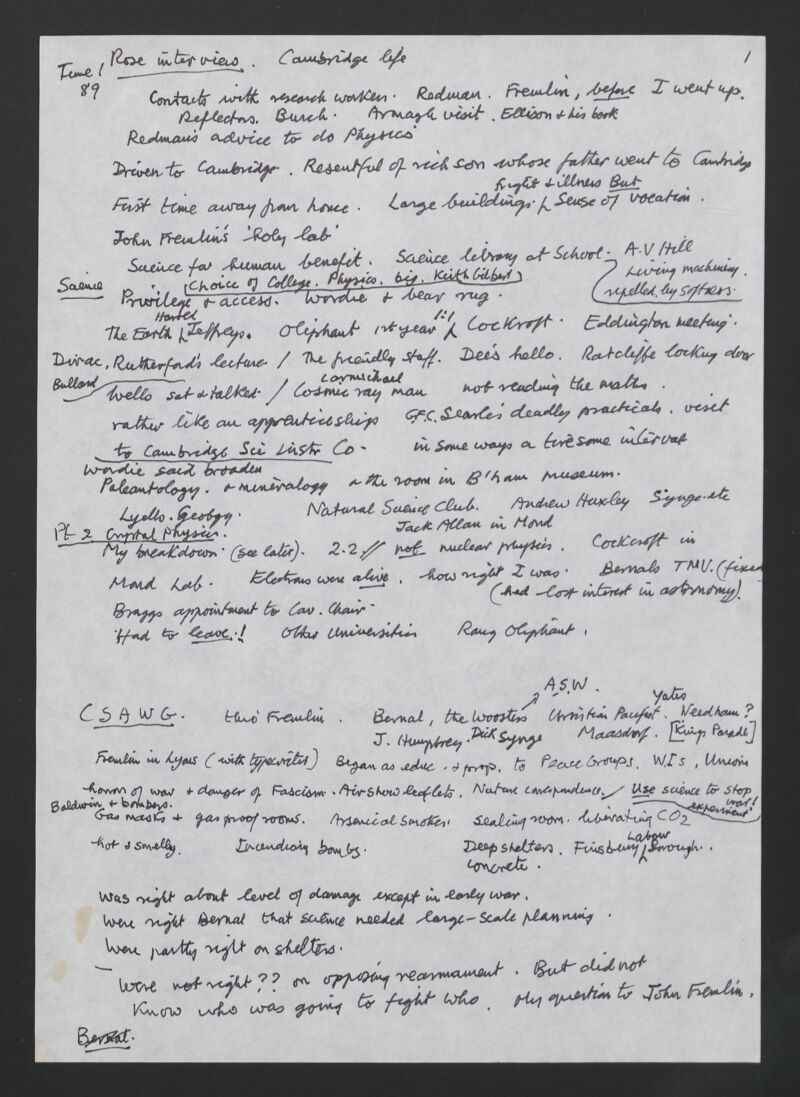 June / Rose interview. Cambridge life 1
89
Contacts with research workers. Redman. Fremlin, before I went up.
Reflectors. Burch. Armagh visit. Ellison & his book
Redman's advice to do Physics
Driven to Cambridge. Resentful of rich son whose father went to Cambridge
fright & illness But
First time away from home. Large buildings. Sense of vocation.
John Fremlin's 'holy lab'
Science for human benefit. Science library at School. A.V Hill
Living machinery.
repelled by softness.
Science (Choice of College. Physics. big. Keith Gilbert)
Privilege & access. Wordie & bear rug.
Harold 1:1
The Earth Jeffreys. Oliphant 1st year Cockroft. Eddington meeting.
Dirac, Rutherford's lecture / The friendly staff. Dee's hello. Ratcliffe locking door
Bullard Carmichael
Wells sat & talked / Cosmic ray man not reading the maths.
rather like an apprenticeship G.F.C. Searle's deadly practicals. visit
to Cambridge Sci Instr Co. in some ways a tiresome interval
Wordie said broaden
Paleantology. & mineralogy & the room in B'ham museum.
Lyells. Geology. Natural Science Club. Andrew Huxley Synge etc
Pt 2 Crystal Physics. Jack Allan in Mond
My breakdown (see later). 2.2. // not nuclear physics. Cockcroft in
Mond Lab. Electrons were alive. how right I was. Bernals TMV. (fixed
(had lost interest in astronomy).
Braggs appointment to Cav. Chair.
Had to leave! Other Universities Rang Oliphant.
A.S.W. Yates
CSAWG. thro' Fremlin. Bernal, the Woosters Christian Pacifist. Needham?
J. Humphrey. Dick Synge Maasdorf. [Kings Parade]
Fremlin in Lyons (with typewriter) Began as educ. & prop. to Peace Groups. W.I s, Unions
horror of war & danger of Fascism. Airshow leaflets. Nature correspondence. Use science to stop
war!
Baldwin & bombers. experiment
Gas masks & gas proof rooms. Arsenical smokes. sealing room. liberating CO2
Labour
hot & smelly. Incendiary bombs. Deep shelters. Finsbury Borough.
concrete.
Was right about level of damage except in early war.
Were right Bernal that science needed large-scale planning.
Were partly right on shelters.
Were not right?? on opposing rearmament. But did not
know who was going to fight who. My question to John Fremlin.
Bernal.